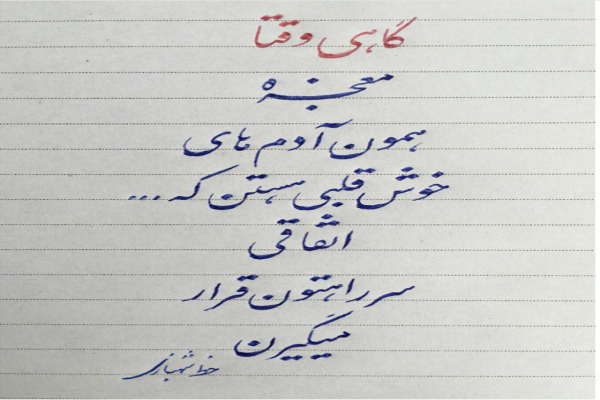 گاهی وقتا
معجزه
همون آدم های
خوش قلبی هستن که...
اتفاقی
سر راهتون قرار
میگیرن
خط شهبازی